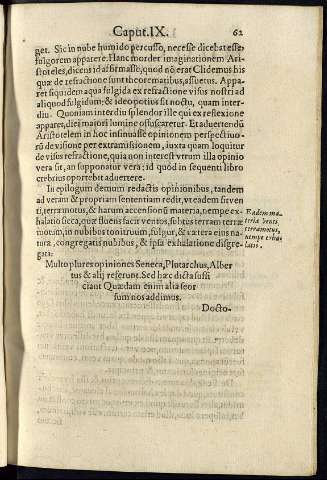 Caput. IX.
62
get. Sic in nube humido percusso, necesse dicebat esse,
fulgorem apparere. Hanc mordet imaginationem Ari-
stoteles, dicens id affirmasse, quod nō erat Clidemus his
quæ de refractione sunt theorematibus, assuetus. Appa-
ret siquidem aqua fulgida ex refractione visus nostri ad
aliquod fulgidum; & ideo potius sit noctu, quam inter-
diu. Quoniam interdiu splendor ille qui ex reflexione
apparet, diei maiori lumine offuscaretur. Et aduertendū
Aristotelem in hoc insinuasse opinionem perspectiuo-
rū de visione per extramissionem, iuxta quam loquitur
de visus refractione, quia non interest vtrum illa opinio
vera sit, an supponatur vera: id quod in sequenti libro
crebrius oportebit aduertere.
In epilogum demum redactis opinionibus, tandem
ad veram & propriam sententiam redit, vt eadem sit ven
ti, terræmotus, & harum accensionū materia, nempe ex-
halatio sicca, quæ fluens facit ventos, subtus terram terræ
motum, in nubibus tonitruum, fulgur, & cætera eius na-
tura, congregatis nubibus, & ipsa exhalatione disgre-
gata.
Eadem ma-
teria venti
terræmotus,
nempe exha
latio.
Multo plures opiniones Seneca, Plutarchus, Alber
tus & alij referunt. Sed hæc dicta suffi
ciant Quædam enim alia seor
sum nos addimus.
Docto-